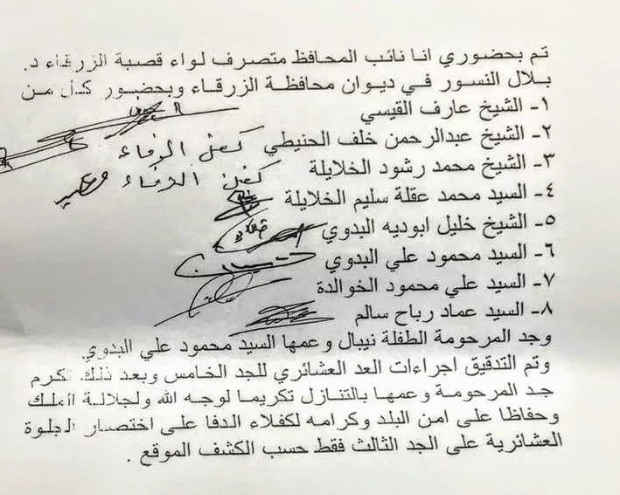 تم بحضوري انا نائب المحافظ متصرف لواء قصبة الزرقاء د.
بلال النسور في ديوان محافظة الزرقاء وبحضور كل من
١- الشيخ عارف القيسي
٢- الشيخ عبدالرحمن خلف الحنيطي كفيل الوفاء
٣- الشيخ محمد رشود الخلايلة كفيل الدفاء
٤- السيد محمد عقلة سليم الخلايلة
٥- الشيخ خليل ابوديه البدوي
٦- السيد محمود علي البدوي
٧- السيد علي محمود الخوالدة
٨- السيد عماد رباح سالم
وجد المرحومة الطفلة نيبال وعمها السيد محمود علي البدوي.
وتم التدقيق اجراءات العد العشائري للجد الخامس وبعد ذلك تكرم
جد المرحومة وعمها بالتنازل تكريما لوجه الله ولجلالة الملك
وحفاظا على امن البلد وكرامه لكفلاء الدفا على اختصار الجلوة
العشائرية على الجد الثالث فقط حسب الكشف الموقع .